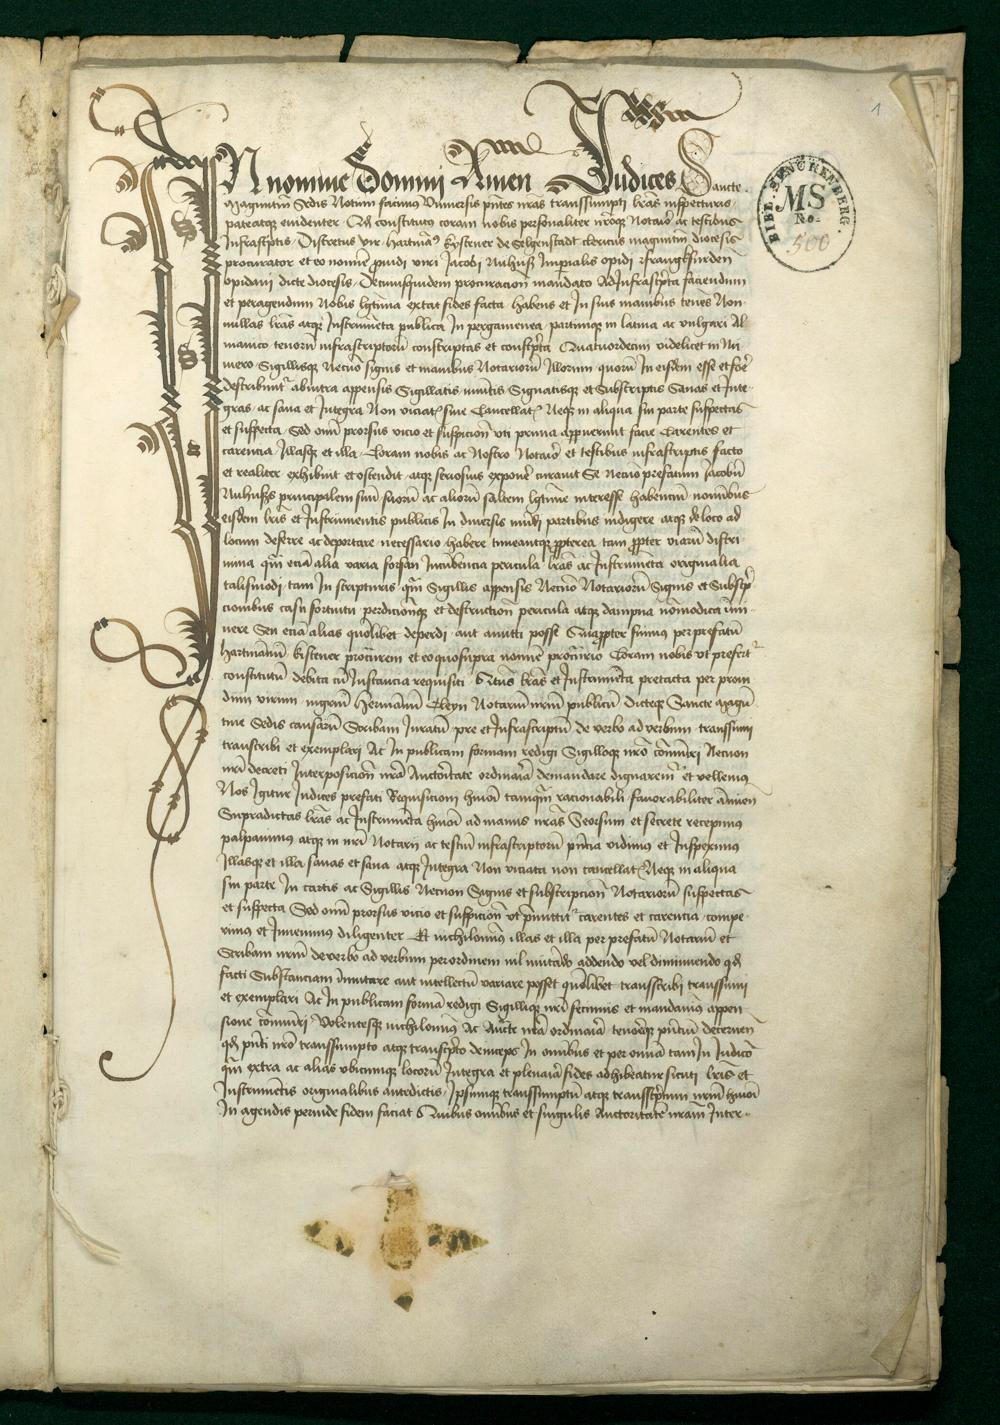 1
BIBL. SENCKENBERG.
MS
No.
500
In nomine Domini Amen Judices Sancte
Maguntin Sedis Notum facimus Universis pntes nras transsumpti lras inspecturis
pateatque euidenter Qd constituto coram nobis personaliter nroque Notario ac testibus
Infrascptis Discretus vir Hartman9 Kystener de Selgenstadt clericus maguntin diocesis
procurator et eo nomine prouidi viri Jacobi Nuhusz Imperialis opidi Franckfurden
opidani dicte diocesis De cuiusquidem procuracion mandato Ad Infrascpta faciendum
et peragendum Nobis lgtima extat fides facta habens et In suis manibus tenes Non
nullas lras atque Instrumeta publica In pergameneo partimque in latino ac vulgari Al
manico tenorum infrascriptoru conscriptas et conscpta Quatuordecim videlicet in Nu
mero Sigillisque Necno signis et manibus Notarioru Illorum quoru In eisdem esse et fore
describuntr abintra appensis Sigillatis munitis Signatisque et Subscriptis Sanas et Inte
gras ac sana et Integra Non viciat siue Cancellat Neque in aliqua sui parte suspectas
et suspecta Sed omni prorsus vicio et suspicion vti prima apparuerunt facie Carentes et
carencia Illasque et illa Coram nobis ac Nostro Notario et testibus infrascriptis facto
et realiter exhibuit et ostendit atque seriosius exponere curauit Se Necno prefatum Jacobum
Nuhusz principalem suu suoru ac alioru saltem lgtime interesse habenciu nominibus
eisdem lris et Instrumentis publicis In diuersis mudi partibus indigere atque de loco ad
locum deferre ac deportare necessario habere timeantque ppterea tam ppter viaru discri
mina qm eciam alia varia forsan Incidencia pericula lras ac Instrumeta originalia
talismodi tam In scripturis qm Sigillis appensis Necno Notarioru Signis et Subscp
cionibus casu fortuitu perdicionque et destruction pericula atque dampna nomodica inu
nere Seu ecia alias quolibet deperdi aut amitti posse Quapropter fuimus per prefatu
Hartmanum Kistener procurem et eo quosupra nomine procurio Coram nobis vt prefert
constitutu debita cu Instancia requisiti Qtus lras et Instrumeta pretacta per proui
dum virum mgrum Hermanu Cleyn Notariu nrum publicu dicteque Sancte magu
tine Sedis causaru Scribam Juratu pre et Infrascriptu de verbo ad verbum transsumi
transcribi et exemplari Ac In publicam formam redigi Sigilloque nro comuiri Necnon
nri decreti Interposicion nra Auctoritate ordinaria demandare dignaremr et vellemus
Nos Igitur Judices prefati Requisicioni huiusmodi tamquam racionabili fauorabiliter annuen
Supradictas lras ac Instrumeta huiusmodi ad manus nras Seorsum et secrete recepimus
palpauimus atque in nri Notarii ac testiu infrascriptoru pntia vidimus et Inspeximus
Illasque et illa sanas et sana atque Integra Non viciata non cancellat Neque in aliqua
sui parte In cartis ac Sigillis Necnon Signis et subscription Notarioru suspectas
et suspecta Sed omni prorsus vicio et suspicion vt pmittitr carentes et carencia compe
rimus et Inuenimus diligenter Et nichilominus illas et illa per prefatu Notariu et
Scribam nrum de verbo ad verbum per ordinem nil mutando addendo vel diminuendo qd
facti Substanciam Inmutare aut intellectu variare posset quolibet transscribi transsumi
et exemplari Ac In publicam forma redigi Sigillique nri fecimus et mandamus appen
sione comuiri Volentesque nichilominus Ac Aucte nra ordinaria tenoreque pntium decernen
qd pnti nro transsumpto atque transcpto deinceps In omnibus et per omnia tam In Judicio
qm extra ac alias vbicumque locoru Integra et plenaria fides adhibeatur sicuti lris et
Instrumetis originalibus antedictis Ipsumque transsumptu atque transscptum nrum huiusmodi
In agendis perinde fidem faciat Quibus omibus et singulis Auctoritate nram Inter